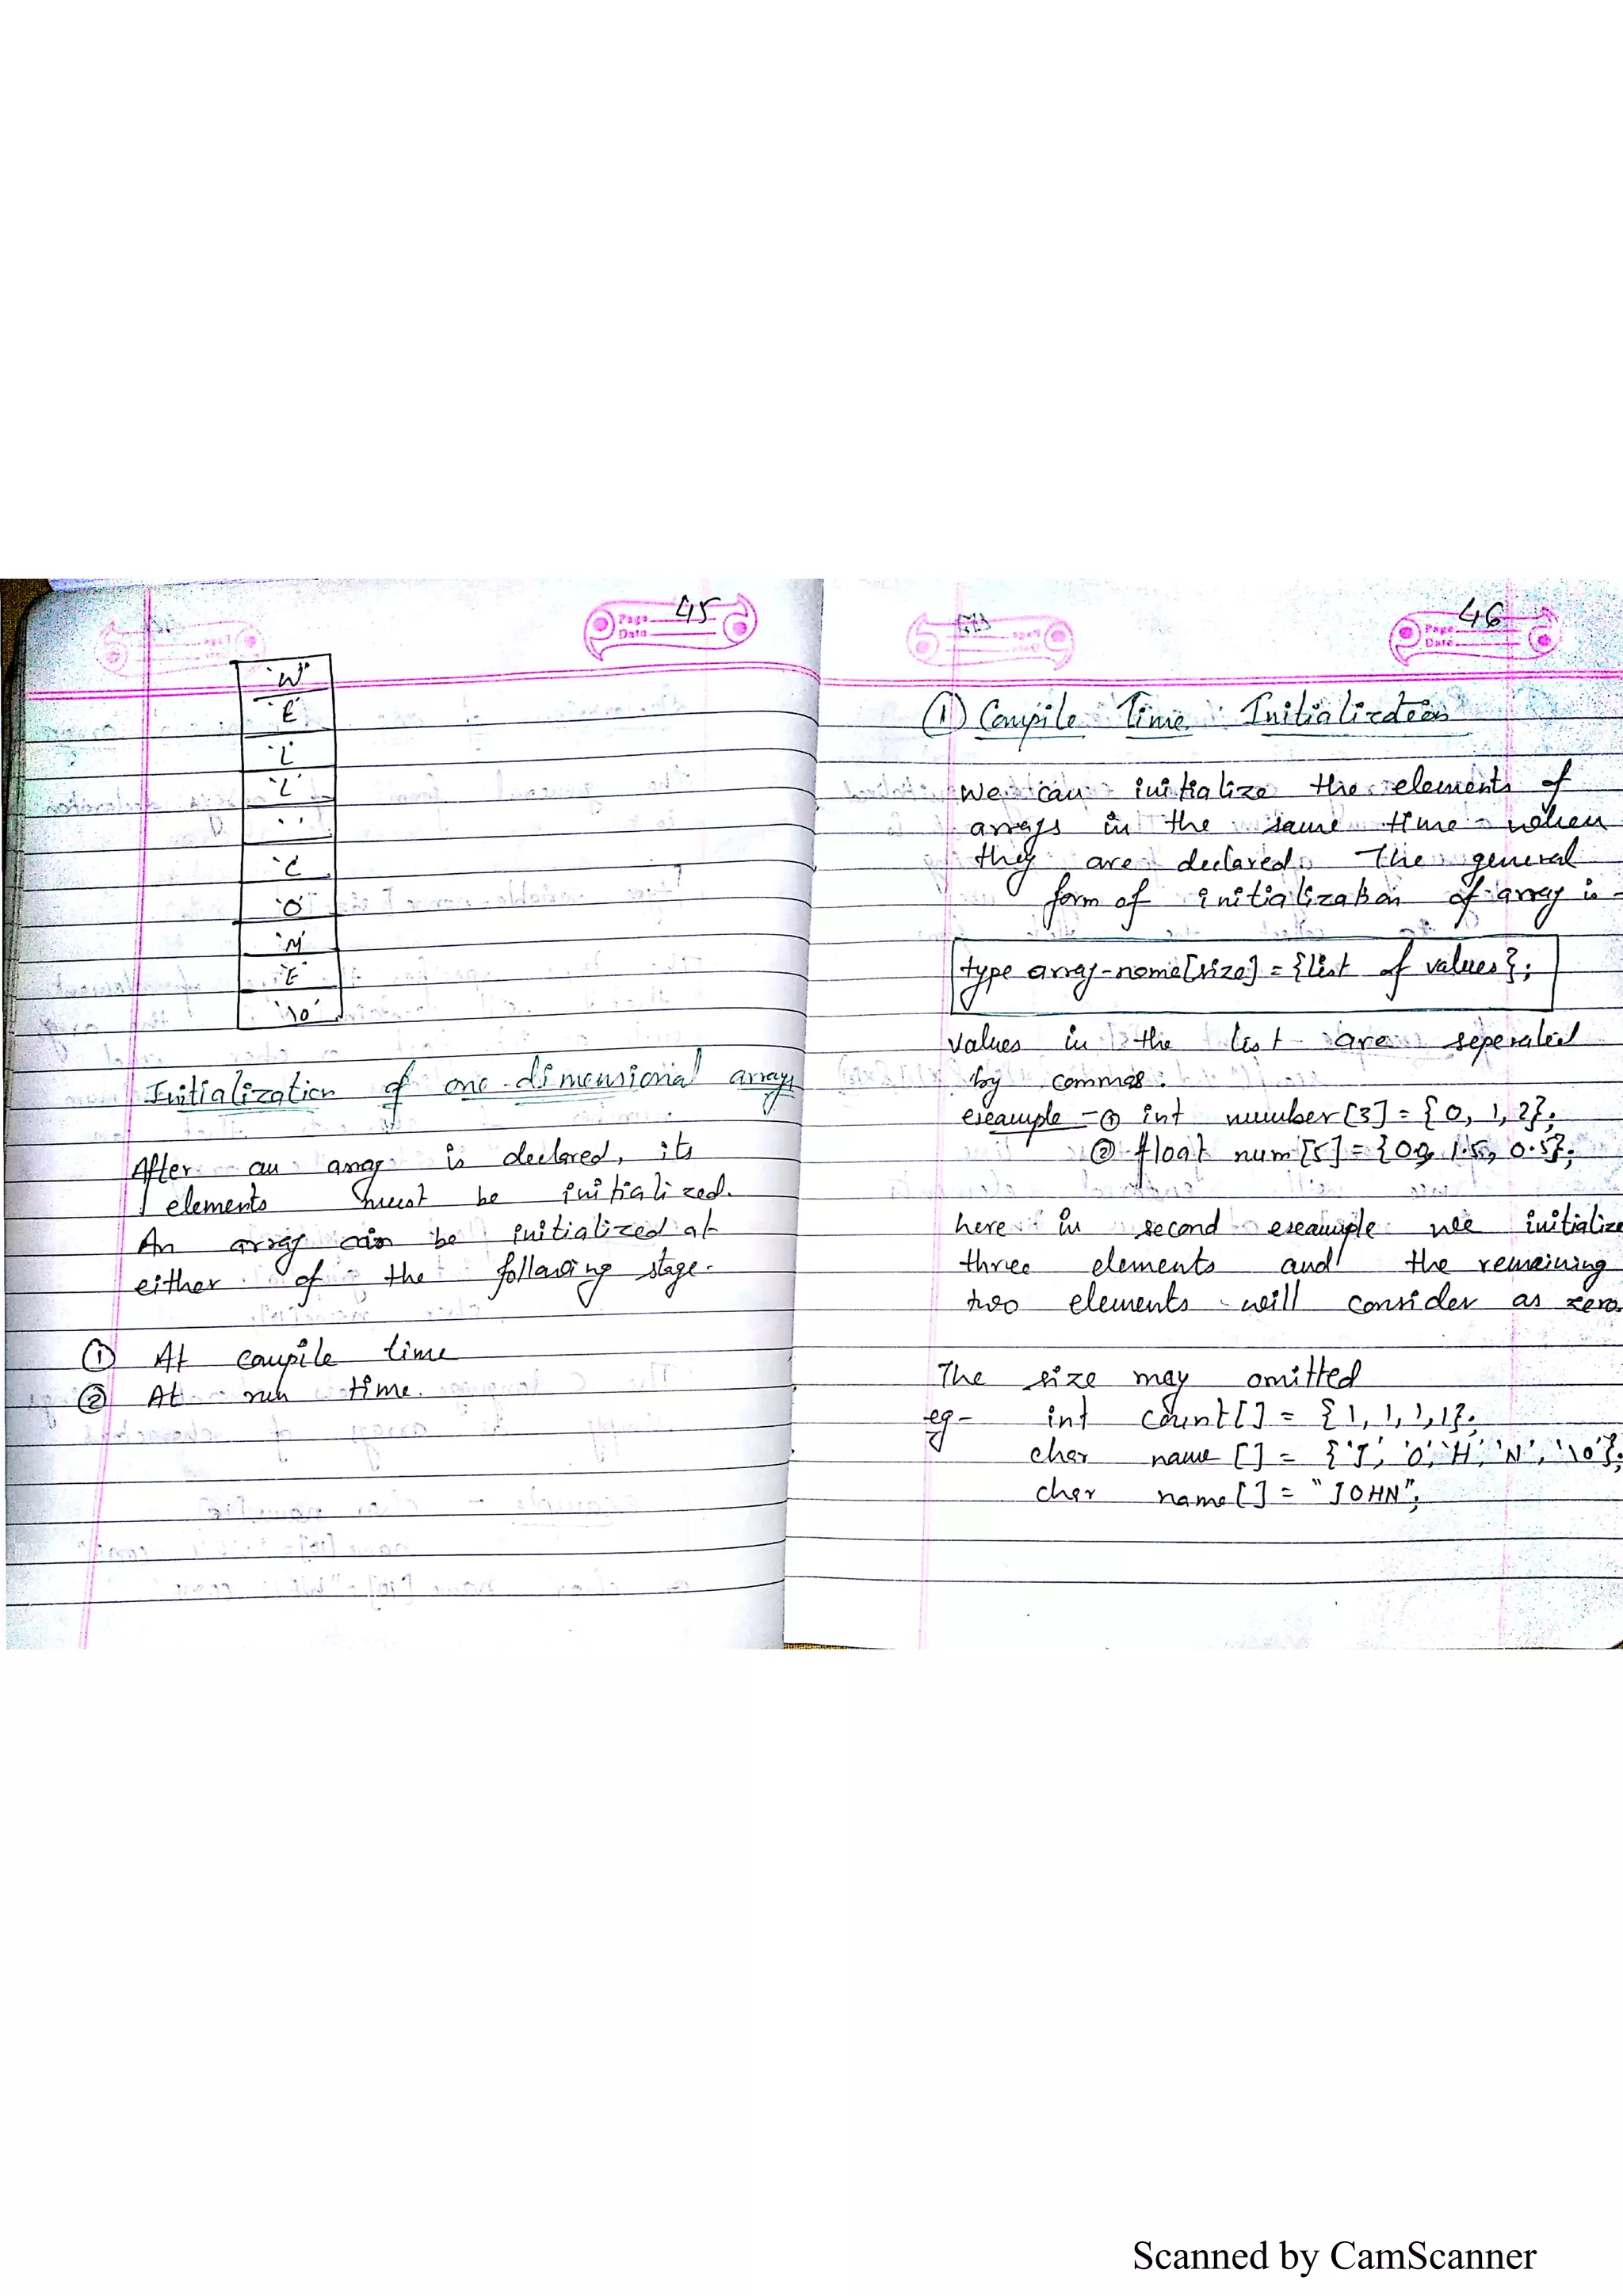 Page 45
Date
'W'
'E'
'L'
'L'
' '
'C'
'O'
'M'
'E'
'\0'
Initialization of one-dimensional arrays
After an array is declared, its
elements must be initialized.
An array can be initialized at
either of the following stage.
① At compile time
② At run time.
Page 46
Date
① Compile Time Initialization
We can initialize the elements of
arrays in the same time when
they are declared. The general
form of initialization of array is -
type array-name[size] = {list of values};
values in the list are seperated
by commas.
example - ① int number[3] = {0, 1, 2};
② float num[5] = {0.0, 1.5, 0.5};
here in second example we initialize
three elements and the remaining
two elements will consider as zero.
The size may omitted
eg- int count[] = {1, 1, 1, 1};
char name[] = {'J', 'O', 'H', 'N', '\0'};
char name[] = "JOHN";
Scanned by CamScanner